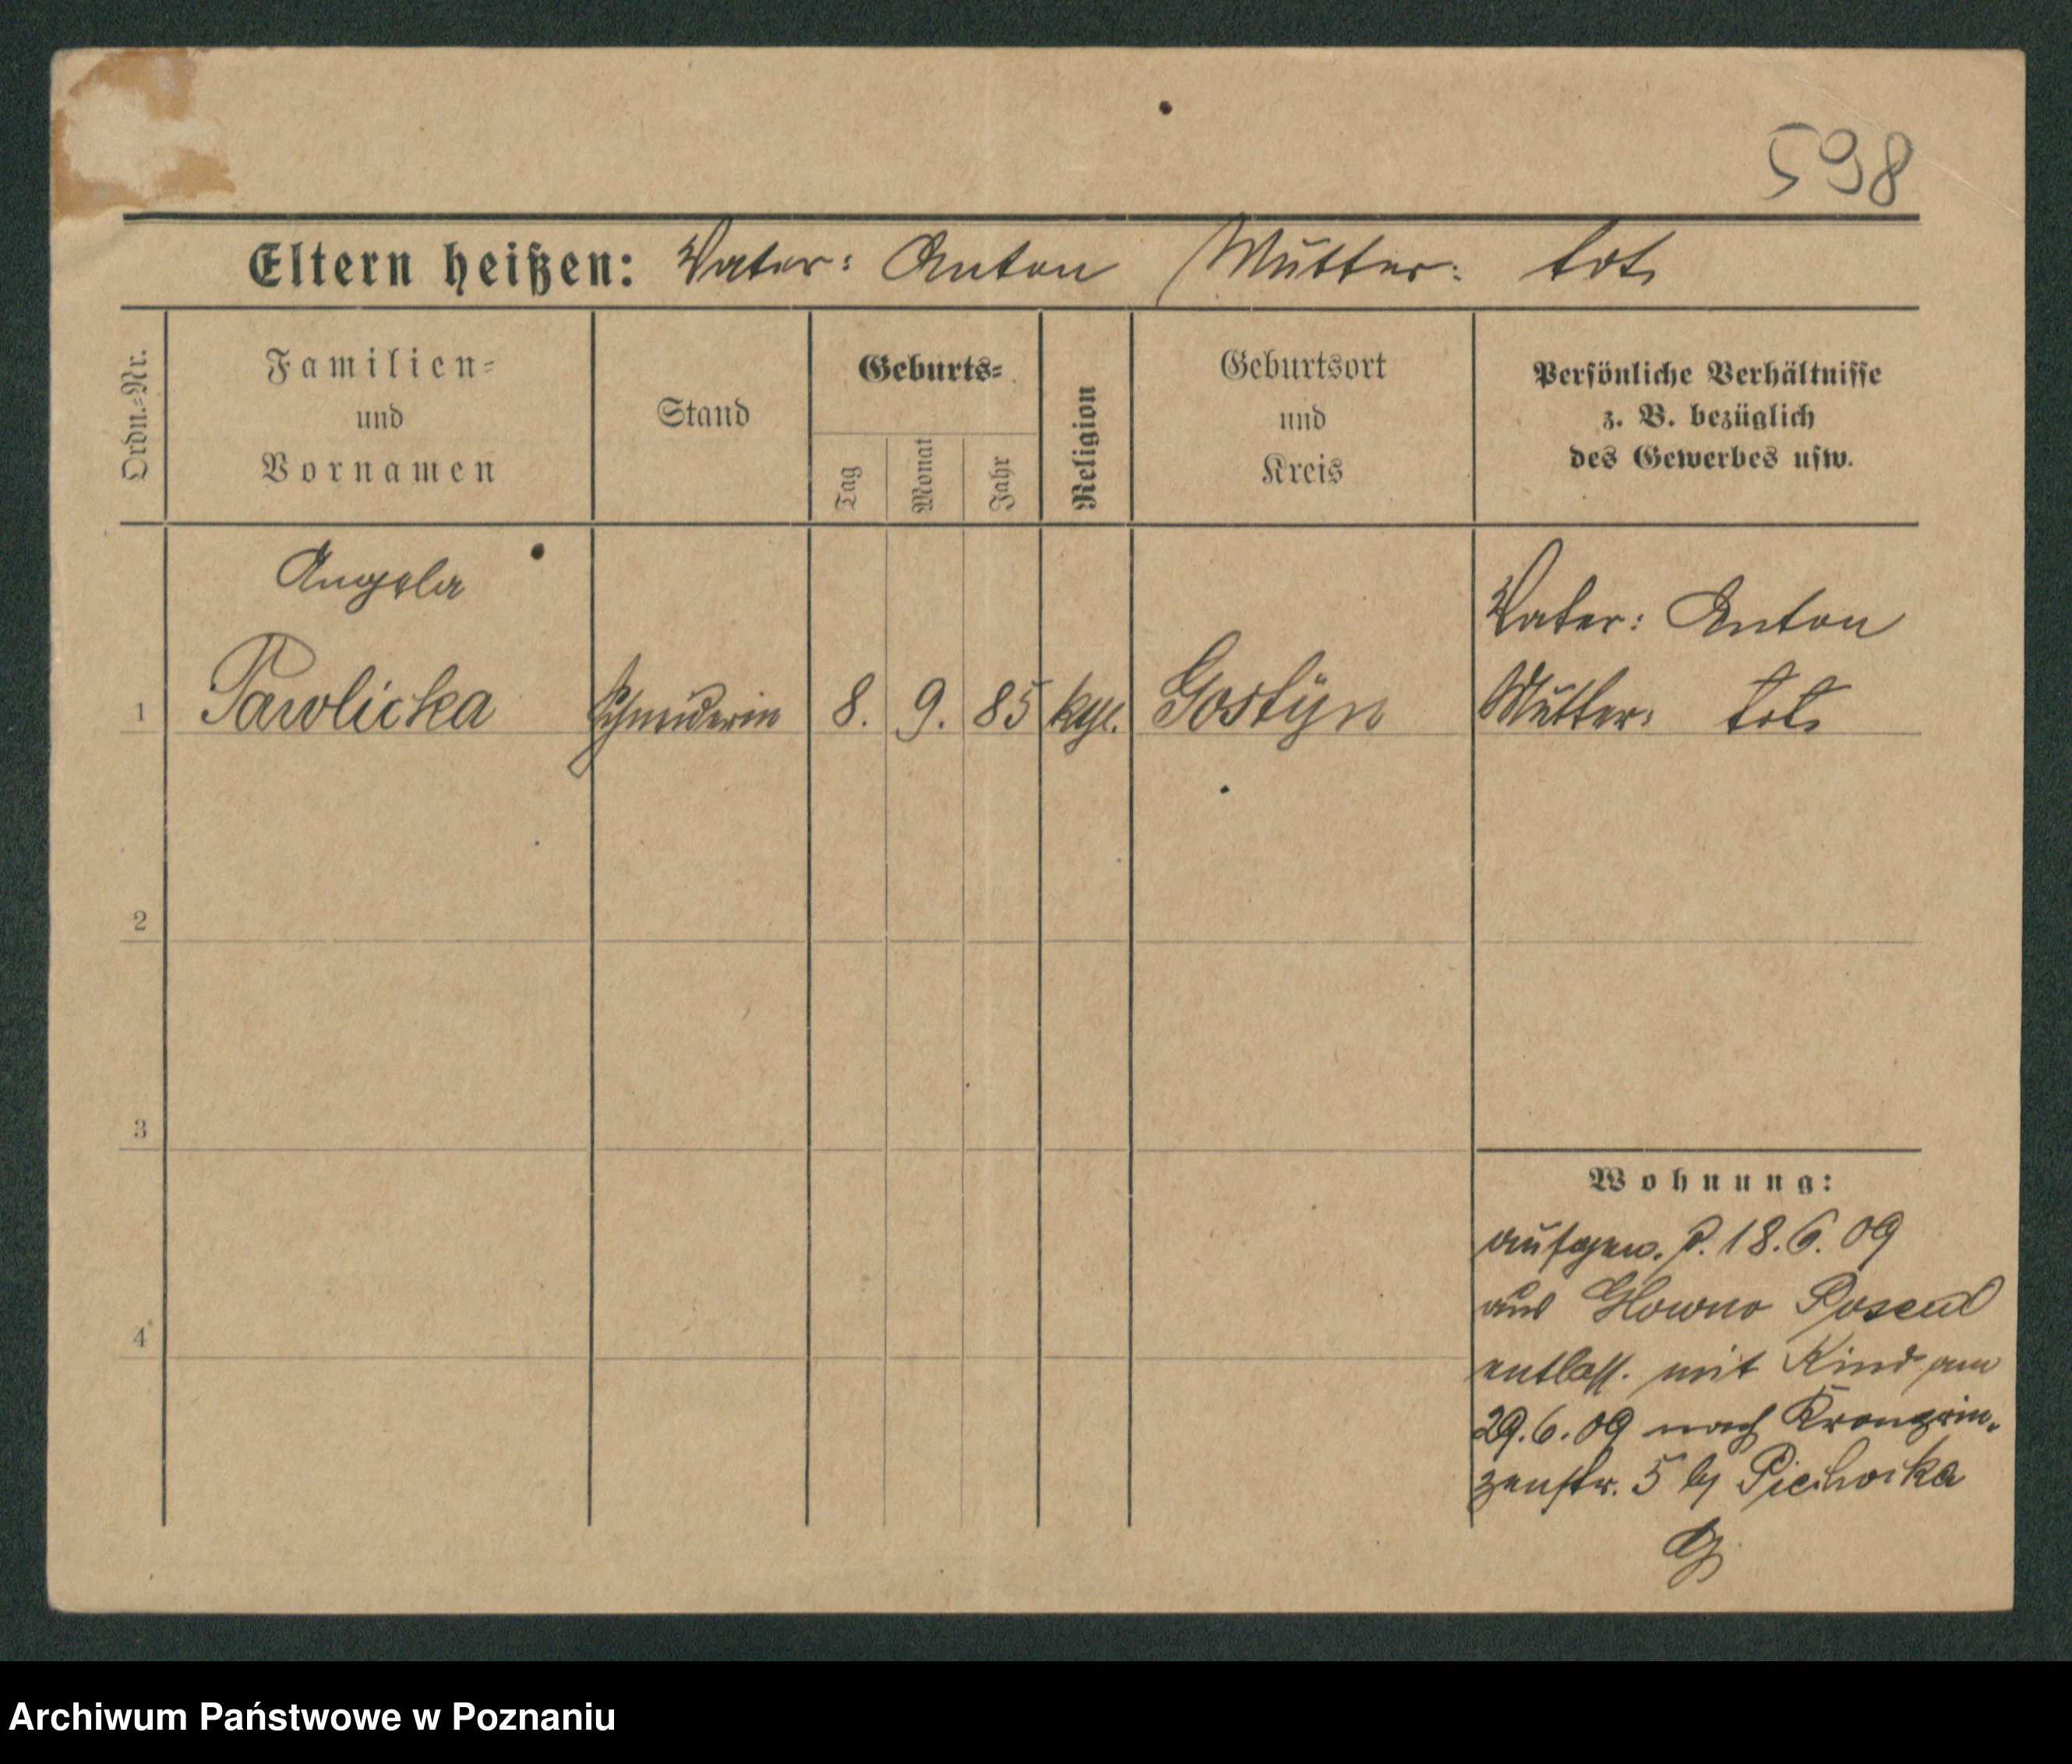 598
Eltern heißen: Vater: Anton Mutter: tot.
Ordn.=Nr.
Familien=
und
Vornamen
Stand
Geburts=
Tag
Monat
Jahr
Religion
Geburtsort
und
Kreis
Persönliche Verhältnisse
z. B. bezüglich
des Gewerbes usw.
Angela
1 Pawlicka Schneiderin 8. 9. 85 kgl. Gostyn
Vater: Anton
Mutter: tot.
2
3
4
Wohnung:
aufgen. 18. 6. 09
aus Glowno
entlass. mit Kind am
29. 6. 09 nach Kronprin-
zenstr. 5 bj
Archiwum Państwowe w Poznaniu